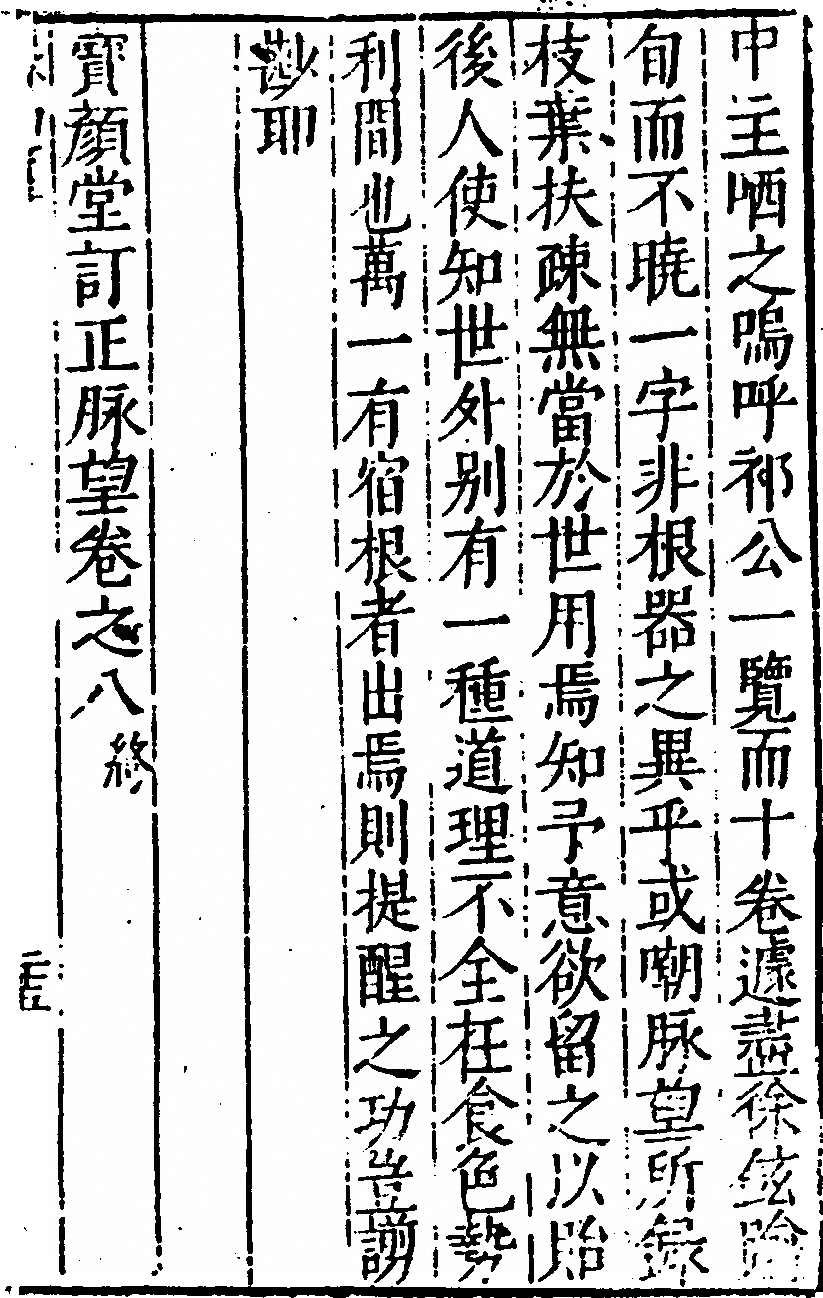 中主哂之嗚呼祁公一覽而十卷遽盡徐鉉踰
旬而不曉一字非根器之異乎或嘲脉望所録
枝葉扶疎無當於世用焉知予意欲留之以貽
後人使知世外别有一種道理不全在食色勢
利間也萬一有宿根者出焉則提醒之功豈謝
尠耶
寶顔堂訂正脉望卷之八終